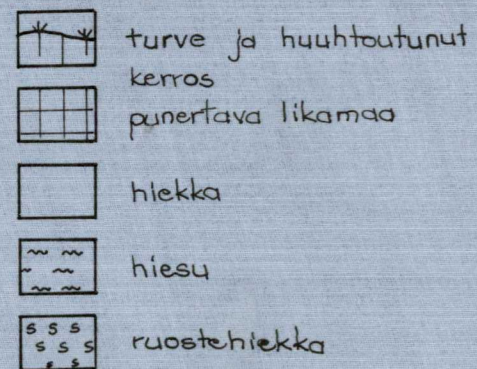 turve ja huuhtoutunut
kerros
punertava likamaa
hiekka
hiesu
s s s
s s s
s s
ruostehiekka